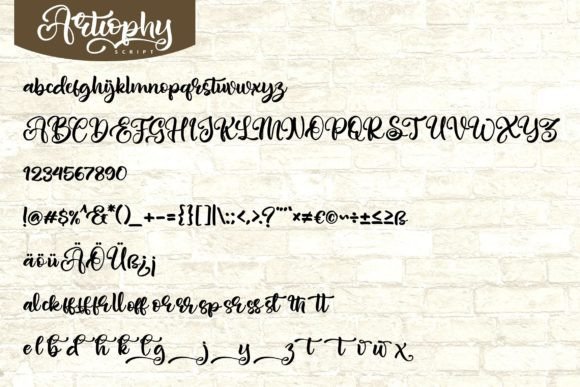 Artiophy
SCRIPT
abcdefghijklmnopqrstuvwxyz
ABCDEFGHIJKLMNOPQRSTUVWXYZ
1234567890
!@#$%^&*()_+-={}[]|\:;<,>.?
äöüÄÖÜß¿¡
or sr sp sr ss st th tt
e l b d h k t g j y z t t v w x